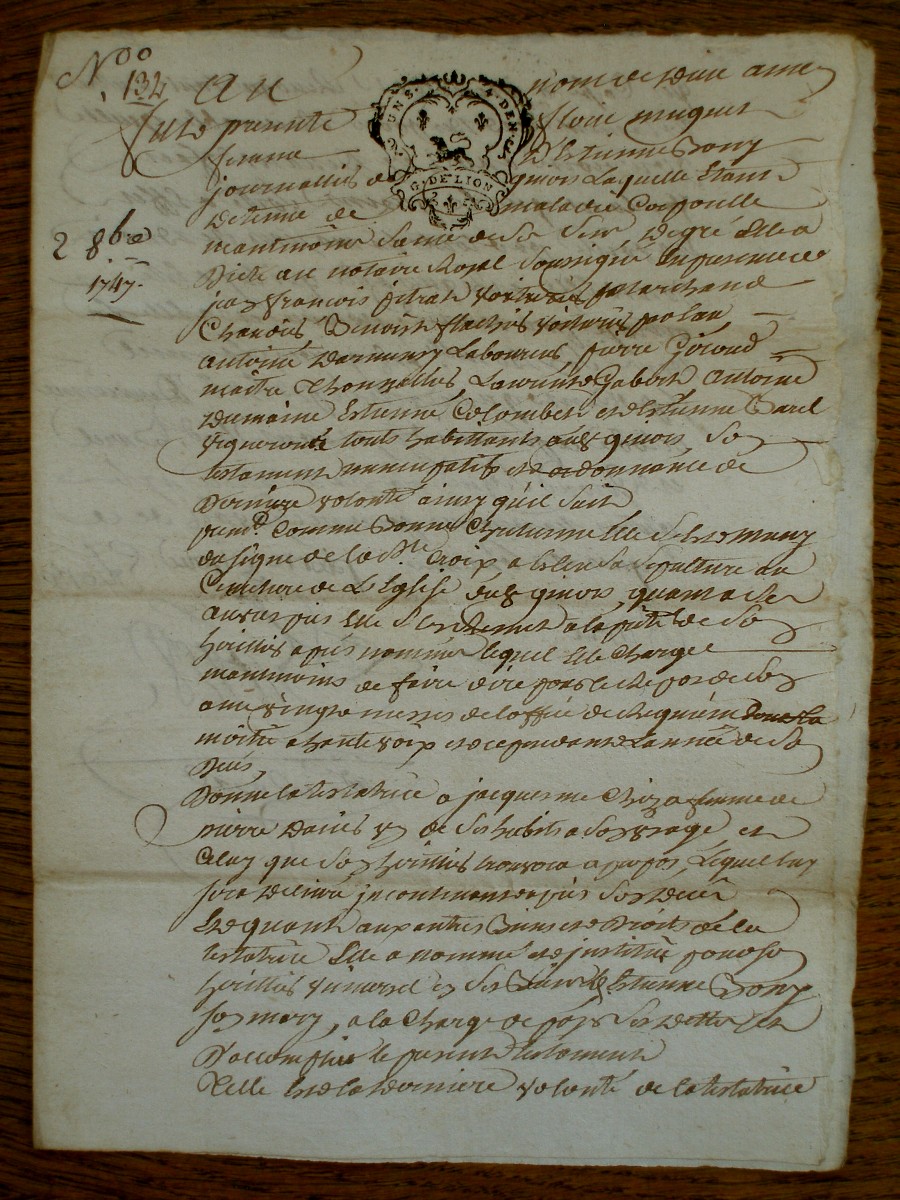 N°°
132
Au nom de Dieu amen
fut presente floire muguet
femme d'Estienne Bony
journallier de
UN S. 4. DEN.
G. DE LION
laquelle Etant
detenue de maladie Corporelle
2 8bre
1747.
neantmoins saine de ses sens De gré Elle a
Dicté au notaire Royal soussigné En presence de
jean françois pitrat marchand
Chanois, Benoist flachis voiturier par eau
Antoine Laboureur, pierre Giroud
maitre thonnellier, Laurens Gaboth Antoine
Dumaine Estienne Colombet et Estienne Barel
vignerons touts habittants son
testament nuncupatif et ordonnance de
Derniere volonté ainsy qu'il suit
premt. Comme Bonne Chretienne Elle s'est muny
du signe de la Ste. Croix a Esleu sa sepulture au
Cimetiere de L'Eglise quant a ses
œuvres pies Elle s'en remet a la pieté de son
heritier après nommé lequel Elle Charge
neantmoins de faire dire pour le Repos de son
ame vingt messes de l'office de Requiem dont la
moitié a haute voix et ce pendant L'année de son
Deces,
Donne la testatrice a jacquesme femme de
pierre un de ses habits a son usage et
Celuy que son heritier trouvera a propos, Lequel luy
sera Delivré jncontinant après son Decès
Et quant aux autres Biens et Droits de la
testatrice Elle a nommé et jnstitué pour son
heritier universel Estienne Bony
son mary, a la Charge de payer ses dettes et
D'accomplir le present testament
Telle Est la Derniere volonté de la testatrice